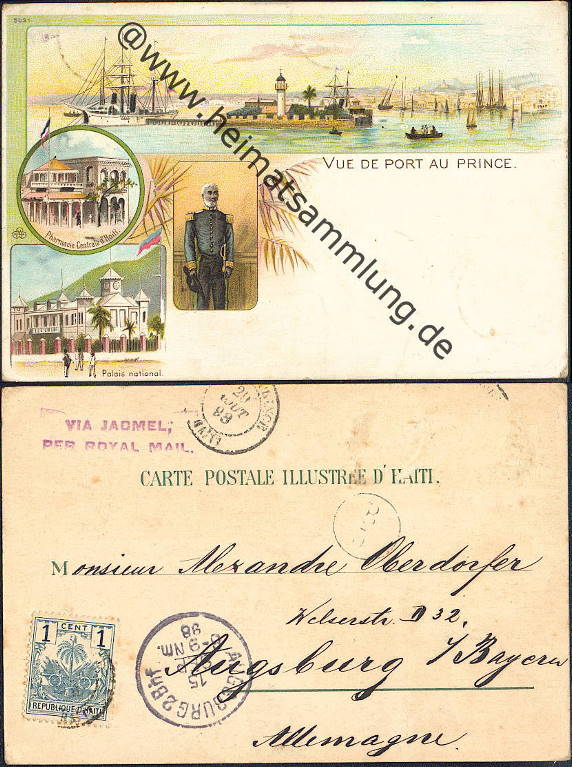 5021
@www.heimatsammlung.de
VUE DE PORT AU PRINCE.
Pharmacie Centrale d'Haïti.
Palais national.
VIA JACMEL,
PER ROYAL MAIL.
29
AOUT
98
CARTE POSTALE ILLUSTRÉE D'HAITI.
Monsieur Alexandre Oberdorfer
Welserstr. D 32.
Augsburg i/Bayern
Allemagne.
1 CENT 1
REPUBLIQUE D'HAITI
AUGSBURG 2 Bhf
15
8-9 Nm.
98